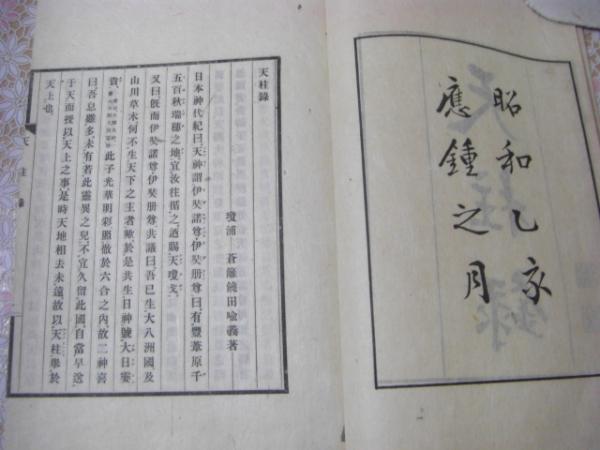 昭和乙亥
應鍾之月
天柱錄
瓊浦 蒼龍饒田喩義著
日本神代紀曰天神謂伊奘諾尊伊奘册尊曰有豐葦原千
五百秋瑞穗之地宜汝往循之迺賜天瓊戈
又曰旣而伊奘諾尊伊奘册尊共議曰吾已生大八洲國及
山川草木何不生天下之主者歟於是共生日神號大日孁
貴 此子光華明彩照徹於六合之內故二神喜
曰吾息雖多未有若此靈異之兒不宜久留此國自當早送
于天而授以天上之事是時天地相去未遠故以天柱擧於
天上也
天柱錄